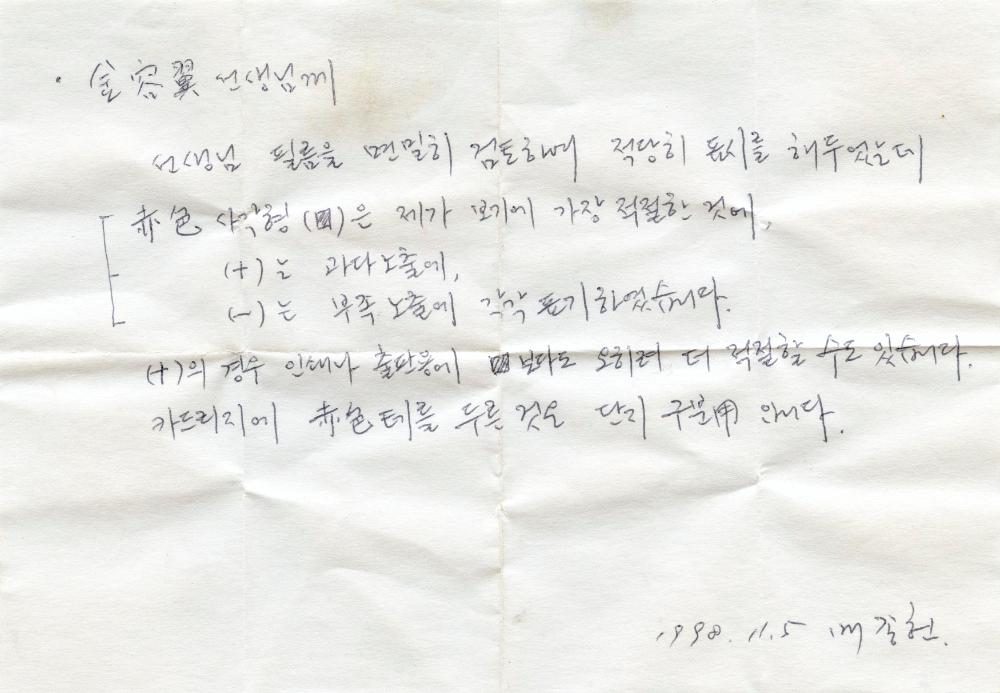 · 金容翼 선생님께
선생님 필름을 면밀히 검토하여 적당히 표시를 해두었는데
赤色 사각형 (▨)은 제가 보기에 가장 적절한 것에,
(+)는 과다노출에,
(-)는 부족노출에 각각 표기하였습니다.
(+)의 경우 인쇄나 출판용에 ▨보다도 오히려 더 적절할 수도 있습니다.
카드리지에 赤色 테를 두른 것은 단지 구분用 입니다.
1998. 11. 5